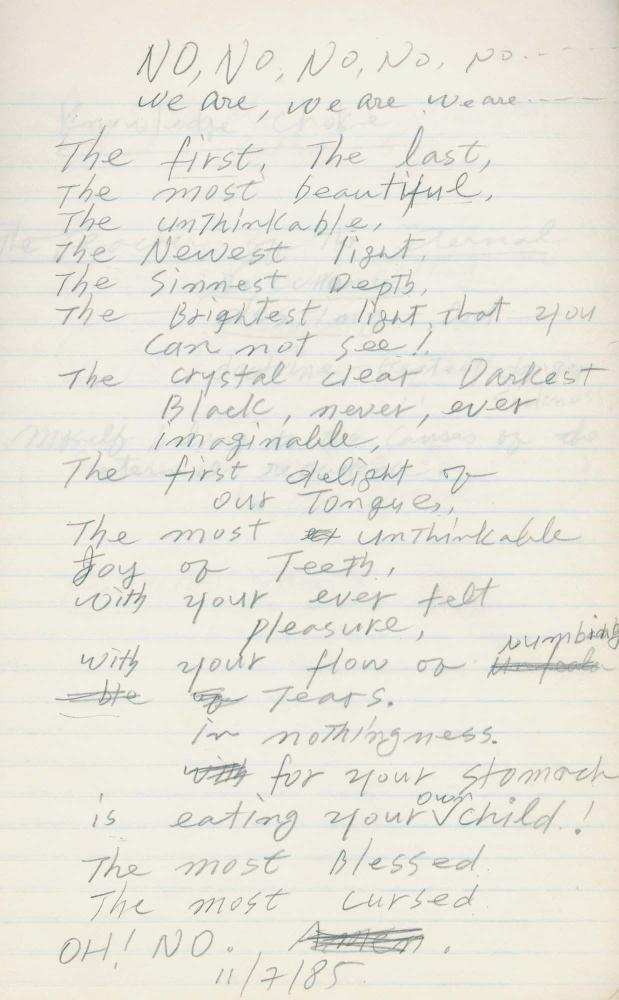 NO, NO, NO, NO, NO.----
we are, we are we are.----
The first, The last,
The most beautiful,
The unThinkable,
The Newest light,
The Sinnest Depth,
The Brightest light, that you
can not see!
The crystal clear Darkest
Black, never, ever
imaginable,
The first delight of
our Tongues,
The most unThinkable
Joy of Teeth,
with your ever felt
pleasure,
numbing
with your flow of
ble of Tears.
in nothingness.
with for your stomach
own
is eating your child!
The most Blessed
The most cursed
OH! NO. Amen.
11/7/85